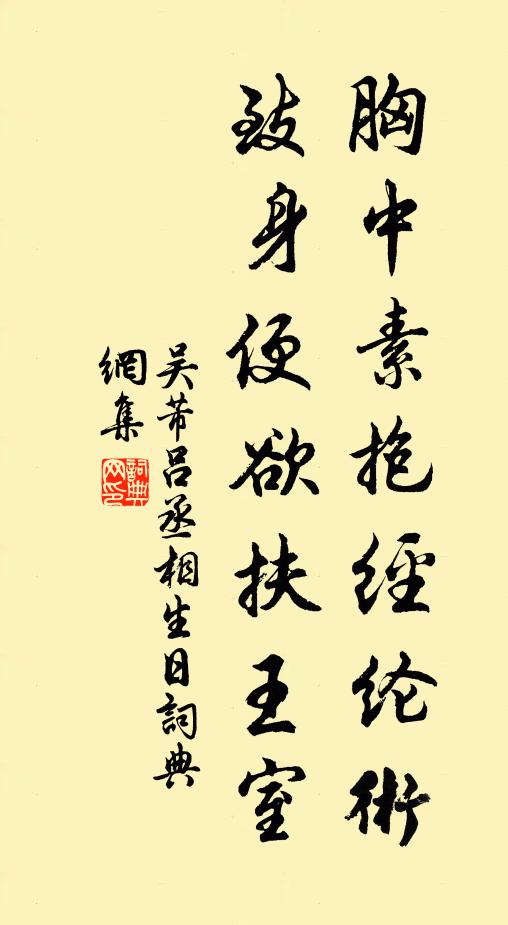 胸中素抱經纶術
致身便欲扶王室
吴芾吕丞相生日詞典
網集
詞典
网印